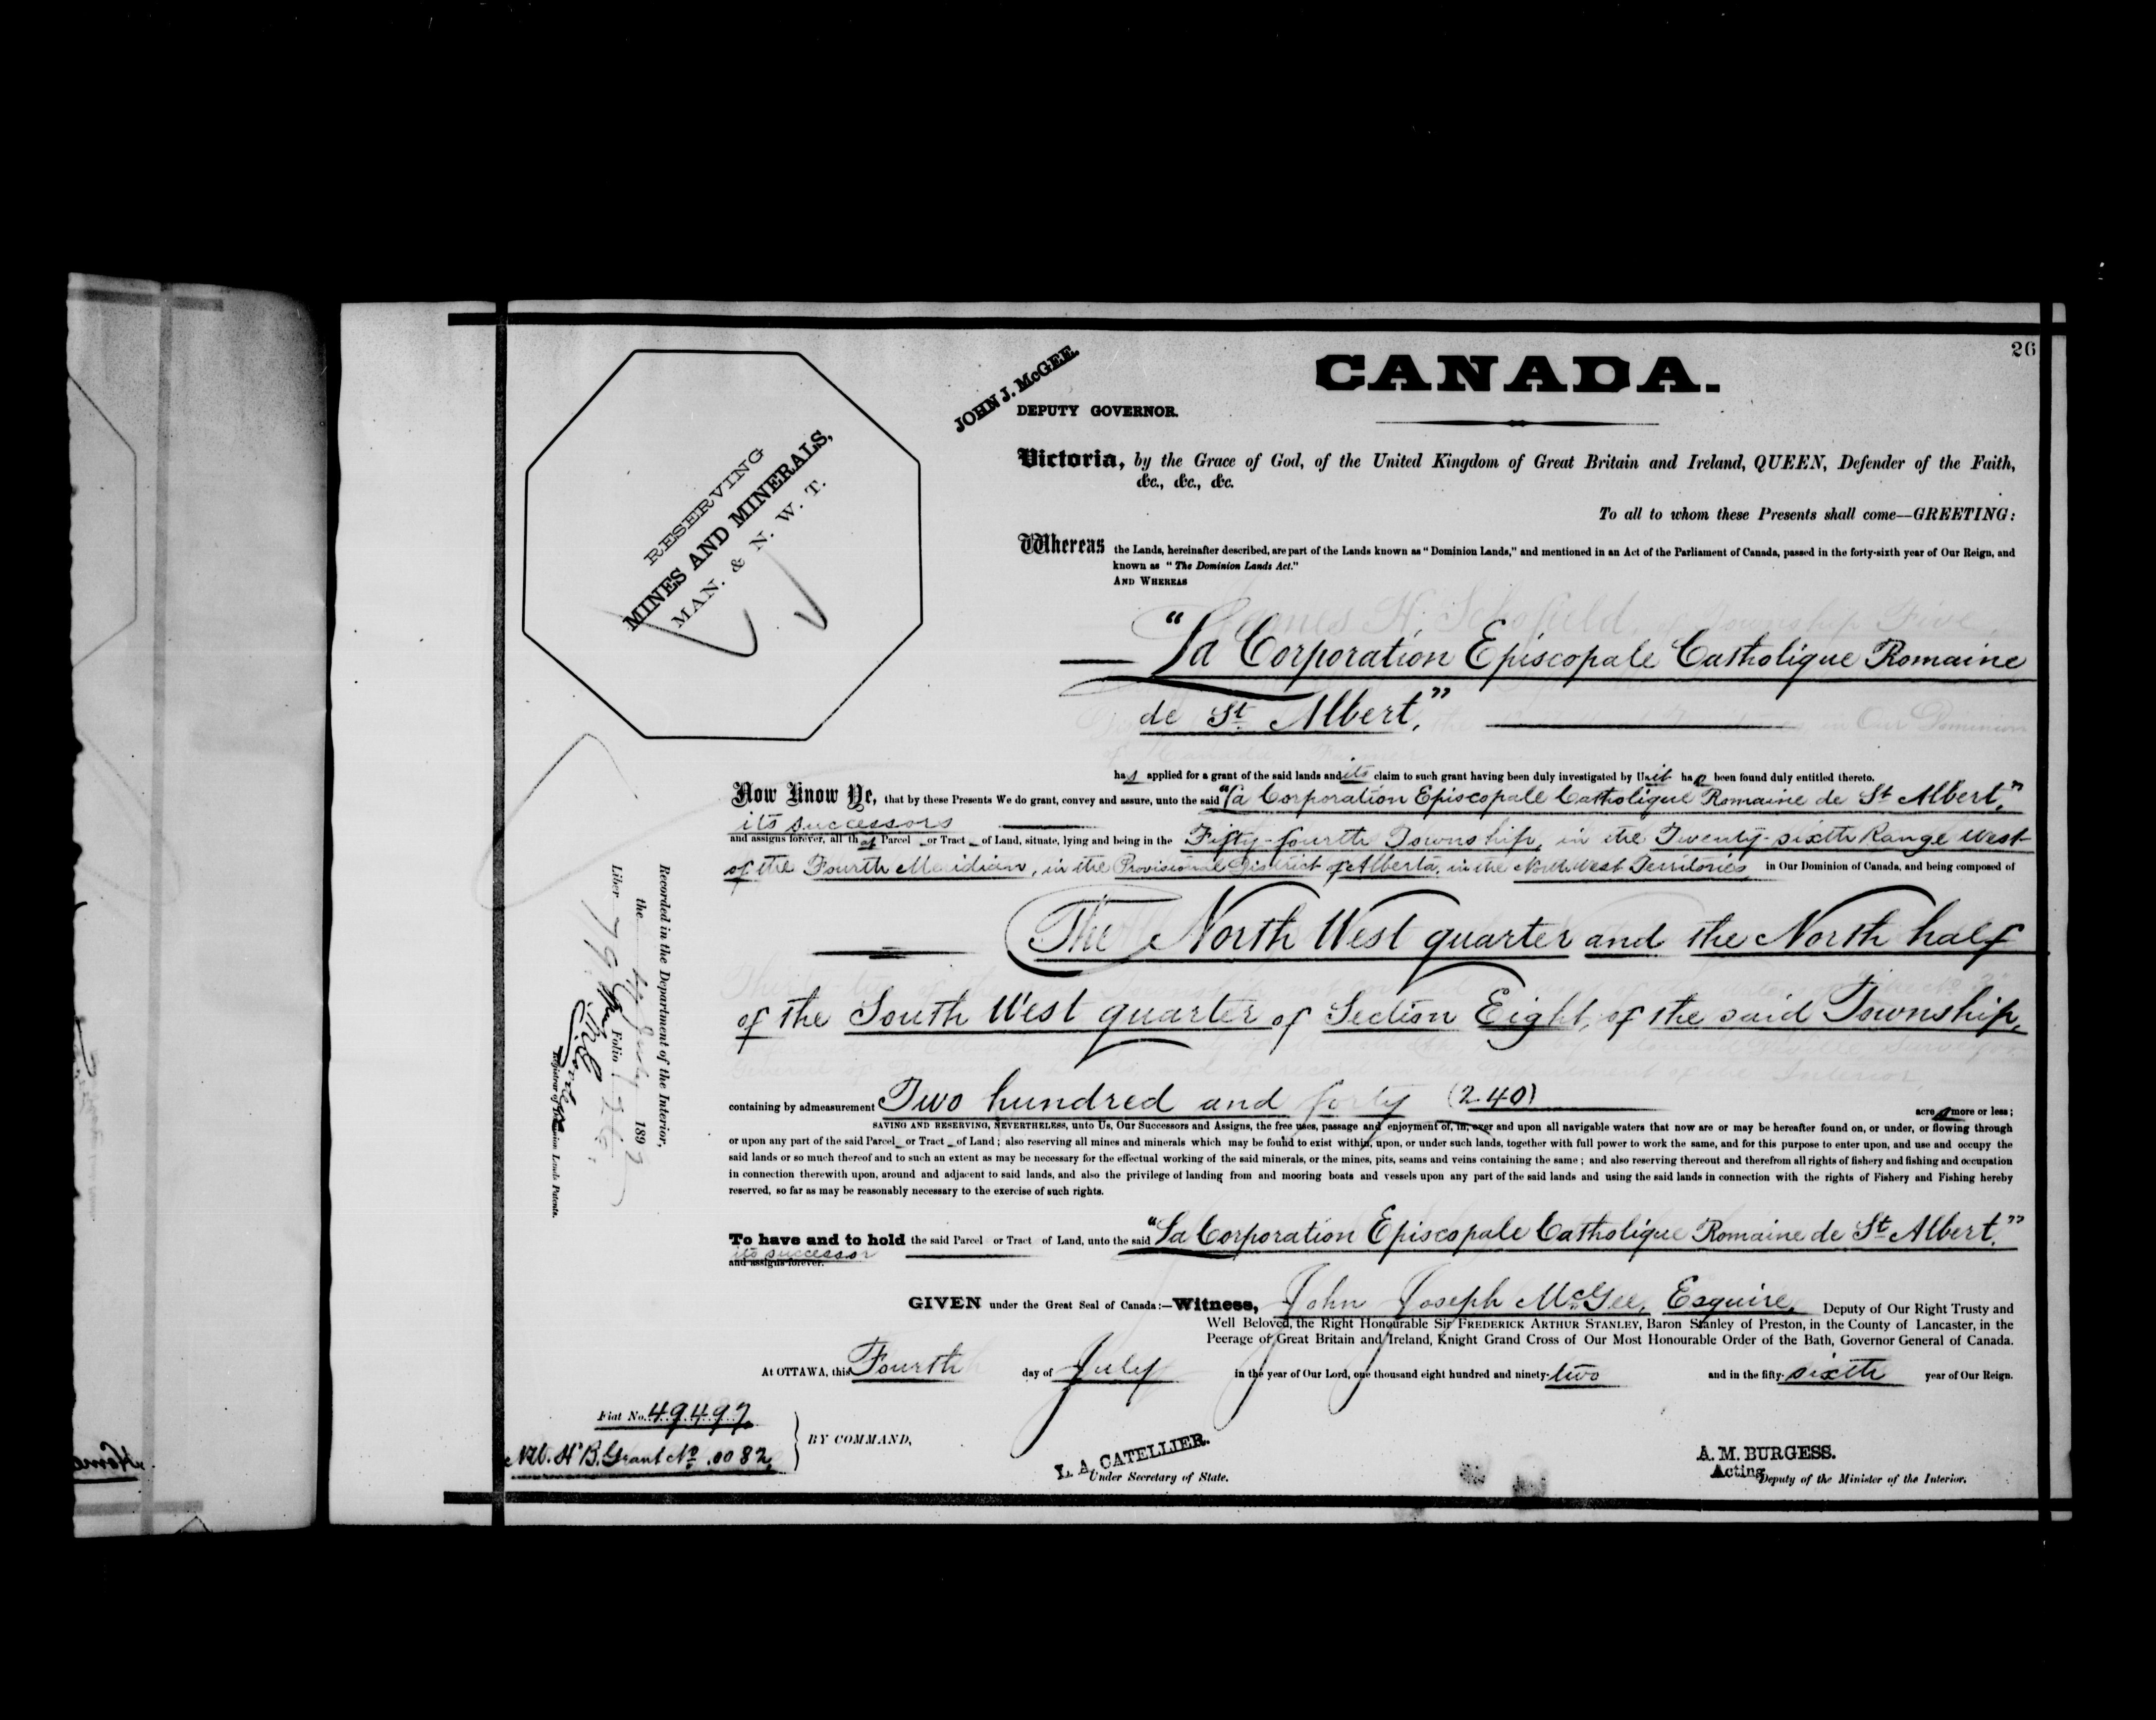 26
CANADA.
JOHN J. McGEE.
DEPUTY GOVERNOR.
RESERVING
MINES AND MINERALS,
MAN. & N. W. T.
Victoria, by the Grace of God, of the United Kingdom of Great Britain and Ireland, QUEEN, Defender of the Faith,
&c., &c., &c.
To all to whom these Presents shall come—GREETING:
Whereas the Lands, hereinafter described, are part of the Lands known as "Dominion Lands," and mentioned in an Act of the Parliament of Canada, passed in the forty-sixth year of Our Reign, and
known as "The Dominion Lands Act."
AND WHEREAS
"La Corporation Episcopale Catholique Romaine
de St Albert."
has applied for a grant of the said lands and its claim to such grant having been duly investigated by Us it has been found duly entitled thereto.
Now Know Ye, that by these Presents We do grant, convey and assure, unto the said "La Corporation Episcopale Catholique Romaine de St Albert,"
its successors
and assigns forever, all that Parcel or Tract of Land, situate, lying and being in the Fifty-fourth Township, in the Twenty-sixth Range West
of the Fourth Meridian, in the Provisional District of Alberta, in the North West Territories in Our Dominion of Canada, and being composed of
The North West quarter and the North half
of the South West quarter of Section Eight, of the said Township,
containing by admeasurement Two hundred and forty (240) acres more or less;
SAVING AND RESERVING, NEVERTHELESS, unto Us, Our Successors and Assigns, the free uses, passage and enjoyment of, in, over and upon all navigable waters that now are or may be hereafter found on, or under, or flowing through
or upon any part of the said Parcel or Tract of Land; also reserving all mines and minerals which may be found to exist within, upon, or under such lands, together with full power to work the same, and for this purpose to enter upon, and use and occupy the
said lands or so much thereof and to such an extent as may be necessary for the effectual working of the said minerals, or the mines, pits, seams and veins containing the same; and also reserving thereout and therefrom all rights of fishery and fishing and occupation
in connection therewith upon, around and adjacent to said lands, and also the privilege of landing from and mooring boats and vessels upon any part of the said lands and using the said lands in connection with the rights of Fishery and Fishing hereby
reserved, so far as may be reasonably necessary to the exercise of such rights.
To have and to hold the said Parcel or Tract of Land, unto the said "La Corporation Episcopale Catholique Romaine de St Albert."
its successor
and assigns forever.
GIVEN under the Great Seal of Canada:—Witness, John Joseph McGee, Esquire, Deputy of Our Right Trusty and
Well Beloved, the Right Honourable Sir FREDERICK ARTHUR STANLEY, Baron Stanley of Preston, in the County of Lancaster, in the
Peerage of Great Britain and Ireland, Knight Grand Cross of Our Most Honourable Order of the Bath, Governor General of Canada.
At OTTAWA, this Fourth day of July in the year of Our Lord, one thousand eight hundred and ninety-two and in the fifty-sixth year of Our Reign.
Fiat No. 49497
N.W. H'B. Grant No. 0082
BY COMMAND,
L. A. CATELLIER.
Under Secretary of State.
A. M. BURGESS.
Acting Deputy of the Minister of the Interior.
Recorded in the Department of the Interior,
the 4 July 1892
Liber 79 Folio
Registrar of Dominion Lands Patents.